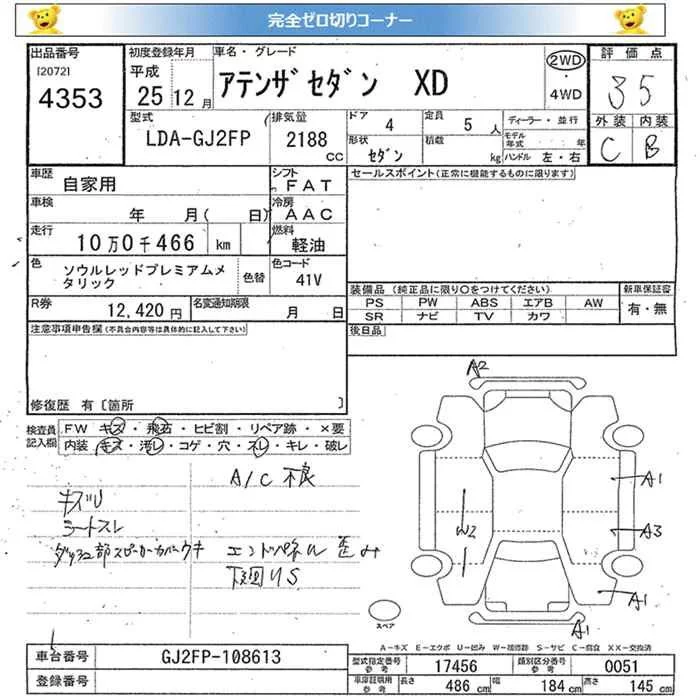 完全ゼロ切りコーナー
出品番号 初度登録年月 車名・グレード 評価点
[2072] 平成 アテンザセダン XD 2WD
4353 25 12月 ・ 4WD 35
型式 排気量 ドア 4 定員 5 人 ディーラー・並行 外装 内装
LDA-GJ2FP 2188 cc 形状 セダン 積載 kg モデル年式 年 ハンドル 左・右 C B
車歴 自家用 シフト FAT セールスポイント(正常に機能するものに限ります)
車検 年 月( 日) 冷房 AAC
走行 10万0千466 km 燃料 軽油
色 ソウルレッドプレミアムメタリック 色替 色コード 41V
装備品(純正品に限り○をつけてください) 新車保証書
R券 12,420円 名変通知期限 月 日 PS PW ABS エアB AW 有・無
SR ナビ TV カワ
注意事項申告欄(不具合内容等は具体的に記入して下さい) 後日品
修復歴 有〔箇所 〕
A2
検査員記入欄 FW キズ・飛石・ヒビ割・リペア跡・×要
内装 キズ・汚レ・コゲ・穴・スレ・キレ・破レ
A/C 不良
A1
キズU
シートスレ
W2 A3
ダッシュ部スピーカーカバーウキ エンドパネル歪み
下回りS
A1
スペア A1
A-キズ E-エクボ U-凹み W-補修跡 S-サビ C-腐食 XX-交換済
車台番号 GJ2FP-108613 型式指定番号 参考 17456 類別区分番号 参考 0051
登録番号 車庫証明用 参考 長さ 486 cm 幅 184 cm 高さ 145 cm